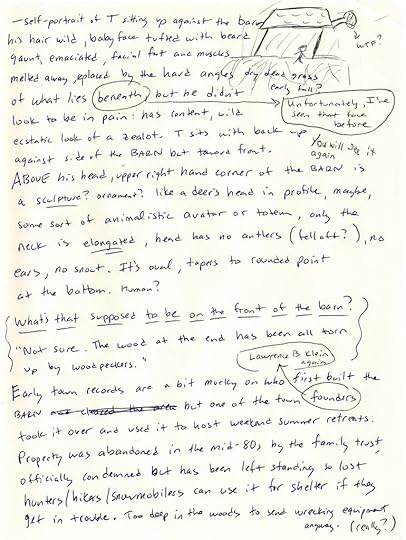 —self-portrait of T sitting up against the barn
his hair wild, babyface tufted with beard
gaunt, emaciated, facial fat and muscles
→ WTF?
melted away, replaced by the hard angles dry dead grass
early fall?
of what lies beneath but he didn't
Unfortunately, I've
seen that face
before
look to be in pain: has content, wild
ecstatic look of a zealot. T sits with back up
You will see it
again
against side of the BARN but toward front.
ABOVE his head, upper right hand corner of the BARN is
a sculpture? ornament? like a deer's head in profile, maybe,
some sort of animalistic avatar or totem, only the
neck is elongated, head has no antlers (fell off?), no
ears, no snout. It's oval, tapers to rounded point
at the bottom. Human?
What's that supposed to be on the front of the barn?
"Not sure. The wood at the end has been all torn
up by woodpeckers."
Lawrence B. Klein
again
Early town records are a bit murky on who first built the
BARN and closed the area but one of the town founders
took it over and used it to host weekend summer retreats.
Property was abandoned in the mid-80s by the family trust,
officially condemned but has been left standing so lost
hunters/hikers/snowmobilers can use it for shelter if they
get in trouble. Too deep in the woods to send wrecking equipment
anyway. (really?)